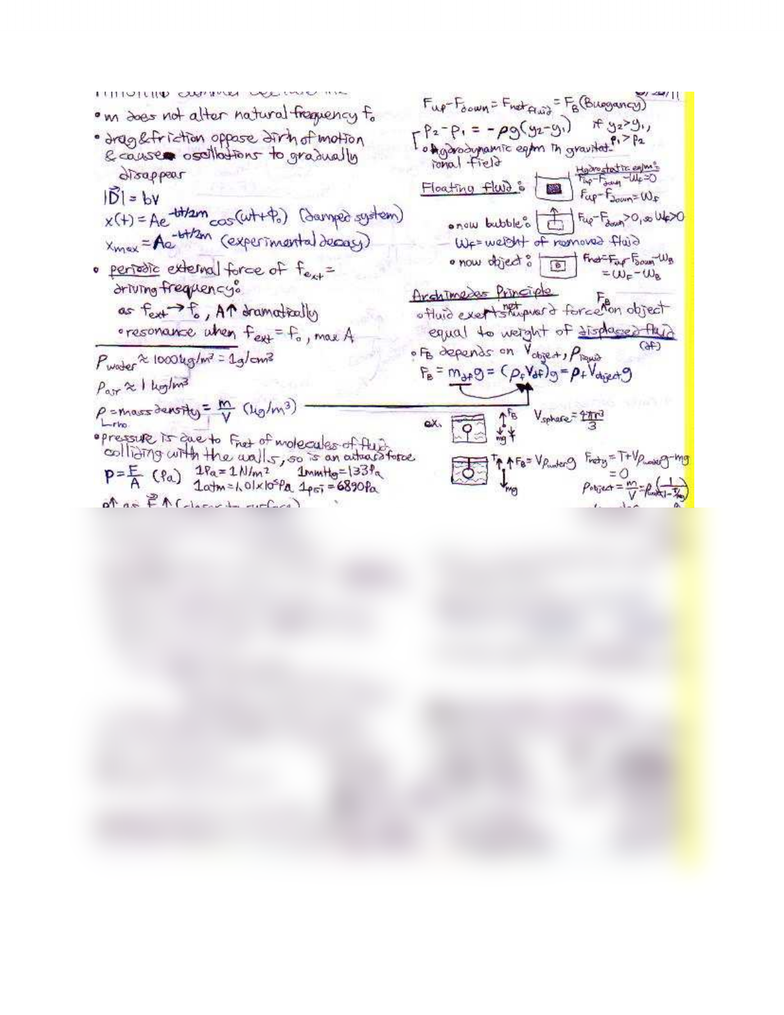 • m does not alter natural frequency f₀
• drag & friction oppose dirn of motion
& cause oscillations to gradually
disappear
|D⃗| = bv
x(t) = Ae^-bt/2m cos(ωt+Φ₀) (damped system)
xmax = Ae^-bt/2m (experimental decay)
• periodic external force of fext =
driving frequency:
as fext → f₀, A↑ dramatically
• resonance when fext = f₀, max A
ρwater ≈ 1000 kg/m³ = 1g/cm³
ρair ≈ 1 kg/m³
ρ = mass density = m/V (kg/m³)
rho
• pressure is due to Fnet of molecules of fluid
colliding with the walls, so is an outward force
p = F/A (Pa) 1Pa = 1 N/m² 1mmHg = 133Pa
1atm = 1.01x10⁵Pa 1psi = 6890Pa
Fup - Fdown = Fnet fluid = FB (Buoyancy)
p₂ - p₁ = -ρg(y₂-y₁) if y₂ > y₁, p₁ > p₂
• hydrodynamic eqm in gravitat
ional field
Hydrostatic eqm:
Floating fluid: Fup - Fdown - WF = 0
Fup - Fdown = WF
• now bubble: Fup - Fdown > 0, so WF > 0
WF = weight of removed fluid
• now object: Fnet = Fup - Fdown - WB
= WF - WB
Archimedes Principle
• fluid exerts net upward force FB on object
equal to weight of displaced fluid
(df)
• FB depends on Vobject, ρliquid
FB = mdf g = (ρf Vdf)g = ρf Vobject g
ex. FB mg T Vsphere = 4πr³/3
T FB = Vρwater g mg Fnety = T + Vρwater g - mg
= 0
ρobject = m/V = ρwater (1/1-T/mg)